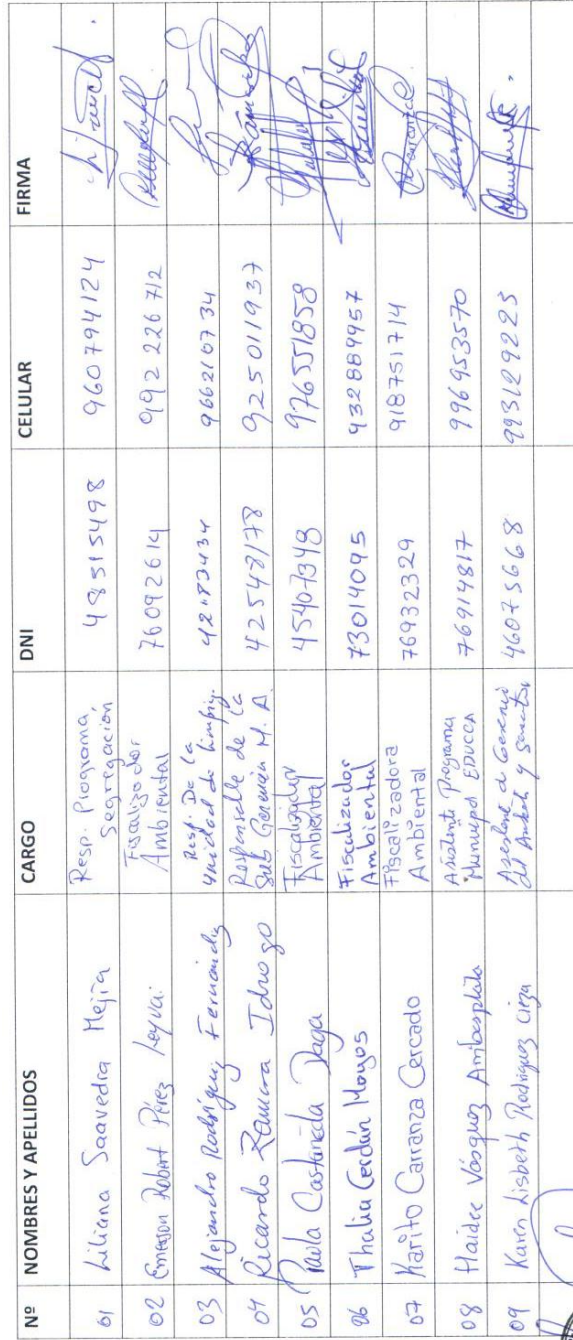 Nº NOMBRES Y APELLIDOS CARGO DNI CELULAR FIRMA
01 Liliana Saavedra Mejía Resp. Programa, Segregación 48515498 960794124
02 Emerson Robert Pérez Leyva. Fiscalizador Ambiental 76092614 992 226 712
03 Alejandro Rodríguez Fernández Resp. De la Unidad de Limpie. 966210734
04 Ricardo Ramira Idrogo Responsable de la Sub Gerencia M. A. 42548178 925011937
05 Paola Castañeda Daga Fiscalizador Ambiental 45407348 976551858
06 Thalia Cerdán Moyos Fiscalizador Ambiental 73014095 932889957
07 Karito Carranza Cercado Fiscalizadora Ambiental 76932329 918751714
08 Haidee Vásquez Ambasplata Asistente Programa Municipal EDUCCA 76914817 996953570
09 Karen Lisbeth Rodriguez Cieza Asistente de Gerencia del Ambiente y 46075668 993129225